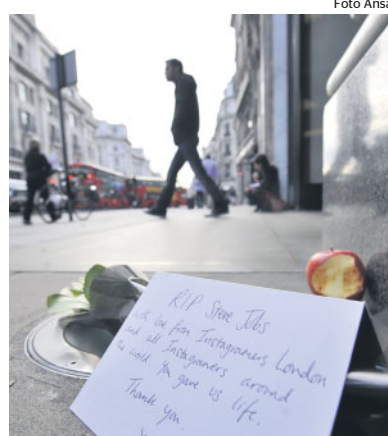 Foto Ansa
RIP Steve Jobs
with love from Instagramers London
and all Instagramers around
the world. You gave us life.
Thank you.
x